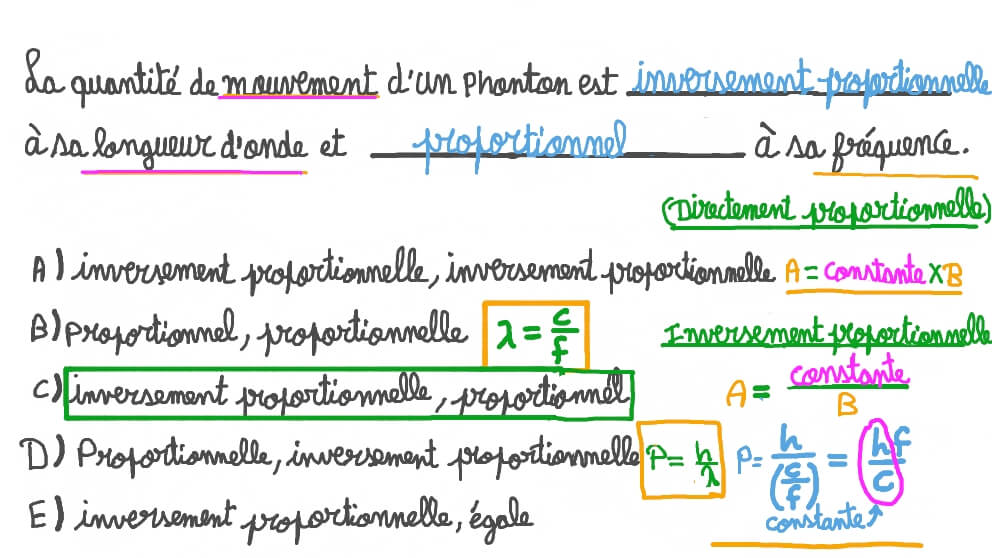 La quantité de mouvement d'un Phonton est inversement proportionnelle
à sa longueur d'onde et proportionnel à sa fréquence.
(Directement proportionnelle)
A) inversement proportionnelle, inversement proportionnelle A = constante × B
B) Proportionnel, proportionnelle λ = c/f Inversement proportionnelle
C) inversement proportionnelle, proportionnel A = constante/B
D) Proportionnelle, inversement proportionnelle P = h/λ P = h/(c/f) = hf/c
E) inversement proportionnelle, égale constante